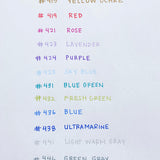 #419 YELLOW OCHRE
#419 RED
#421 ROSE
#423 LAVENDER
#424 PURPLE
SKY BLUE
#431 BLUE GREEN
#432 FRESH GREEN
#436 BLUE
#438 ULTRAMARINE
LIGHT WARM GRAY
#446 GREEN GRAY